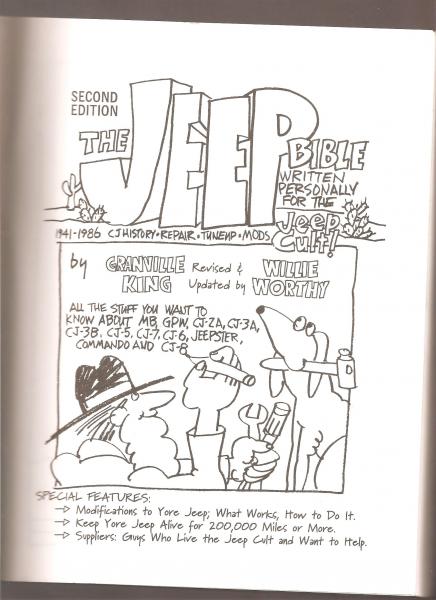 SECOND
EDITION
THE JEEP BIBLE
WRITTEN
PERSONALLY
FOR THE
Jeep
Cult!
1941-1986 CJ HISTORY • REPAIR • TUNEUP • MODS
by GRANVILLE KING Revised & Updated by WILLIE WORTHY
ALL THE STUFF YOU WANT TO
KNOW ABOUT MB, GPW, CJ-2A, CJ-3A,
CJ-3B, CJ-5, CJ-7, CJ-6, JEEPSTER,
COMMANDO AND CJ-8
SPECIAL FEATURES:
→ Modifications to Yore Jeep; What Works, How to Do It.
→ Keep Yore Jeep Alive for 200,000 Miles or More.
→ Suppliers: Guys Who Live the Jeep Cult and Want to Help.